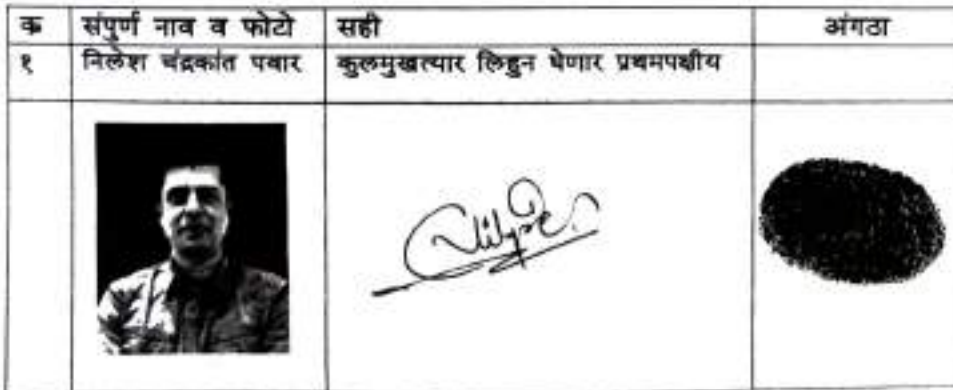 क संपुर्ण नाव व फोटो सही अंगठा
१ निलेश चंद्रकांत पवार कुलमुखत्यार लिहुन घेणार प्रथमपक्षीय